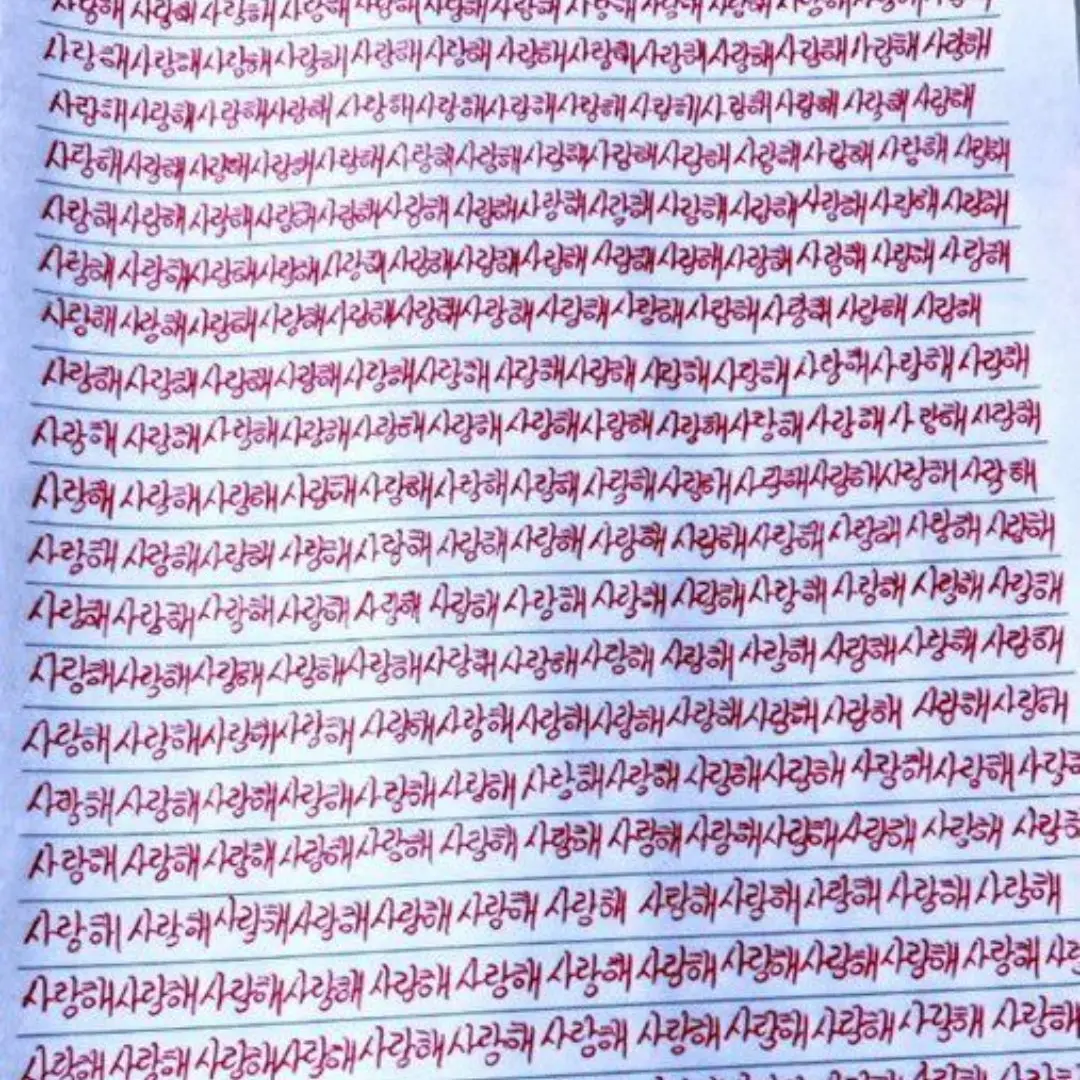 사랑해 사랑해 사랑해 사랑해 사랑해 사랑해 사랑해 사랑해 사랑해 사랑해 사랑해 사랑해 사랑해
사랑해 사랑해 사랑해 사랑해 사랑해 사랑해 사랑해 사랑해 사랑해 사랑해 사랑해 사랑해 사랑해
사랑해 사랑해 사랑해 사랑해 사랑해 사랑해 사랑해 사랑해 사랑해 사랑해 사랑해 사랑해 사랑해
사랑해 사랑해 사랑해 사랑해 사랑해 사랑해 사랑해 사랑해 사랑해 사랑해 사랑해 사랑해 사랑해 사랑해
사랑해 사랑해 사랑해 사랑해 사랑해 사랑해 사랑해 사랑해 사랑해 사랑해 사랑해 사랑해 사랑해 사랑해
사랑해 사랑해 사랑해 사랑해 사랑해 사랑해 사랑해 사랑해 사랑해 사랑해 사랑해 사랑해 사랑해 사랑해
사랑해 사랑해 사랑해 사랑해 사랑해 사랑해 사랑해 사랑해 사랑해 사랑해 사랑해 사랑해 사랑해
사랑해 사랑해 사랑해 사랑해 사랑해 사랑해 사랑해 사랑해 사랑해 사랑해 사랑해 사랑해 사랑해
사랑해 사랑해 사랑해 사랑해 사랑해 사랑해 사랑해 사랑해 사랑해 사랑해 사랑해 사랑해 사랑해
사랑해 사랑해 사랑해 사랑해 사랑해 사랑해 사랑해 사랑해 사랑해 사랑해 사랑해 사랑해 사랑해
사랑해 사랑해 사랑해 사랑해 사랑해 사랑해 사랑해 사랑해 사랑해 사랑해 사랑해 사랑해 사랑해
사랑해 사랑해 사랑해 사랑해 사랑해 사랑해 사랑해 사랑해 사랑해 사랑해 사랑해 사랑해 사랑해
사랑해 사랑해 사랑해 사랑해 사랑해 사랑해 사랑해 사랑해 사랑해 사랑해 사랑해 사랑해 사랑해
사랑해 사랑해 사랑해 사랑해 사랑해 사랑해 사랑해 사랑해 사랑해 사랑해 사랑해 사랑해 사랑해
사랑해 사랑해 사랑해 사랑해 사랑해 사랑해 사랑해 사랑해 사랑해 사랑해 사랑해 사랑해 사랑
사랑해 사랑해 사랑해 사랑해 사랑해 사랑해 사랑해 사랑해 사랑해 사랑해 사랑해 사랑해 사랑
사랑해 사랑해 사랑해 사랑해 사랑해 사랑해 사랑해 사랑해 사랑해 사랑해 사랑해 사랑해
사랑해 사랑해 사랑해 사랑해 사랑해 사랑해 사랑해 사랑해 사랑해 사랑해 사랑해 사랑해
사랑해 사랑해 사랑해 사랑해 사랑해 사랑해 사랑해 사랑해 사랑해 사랑해 사랑해 사랑해